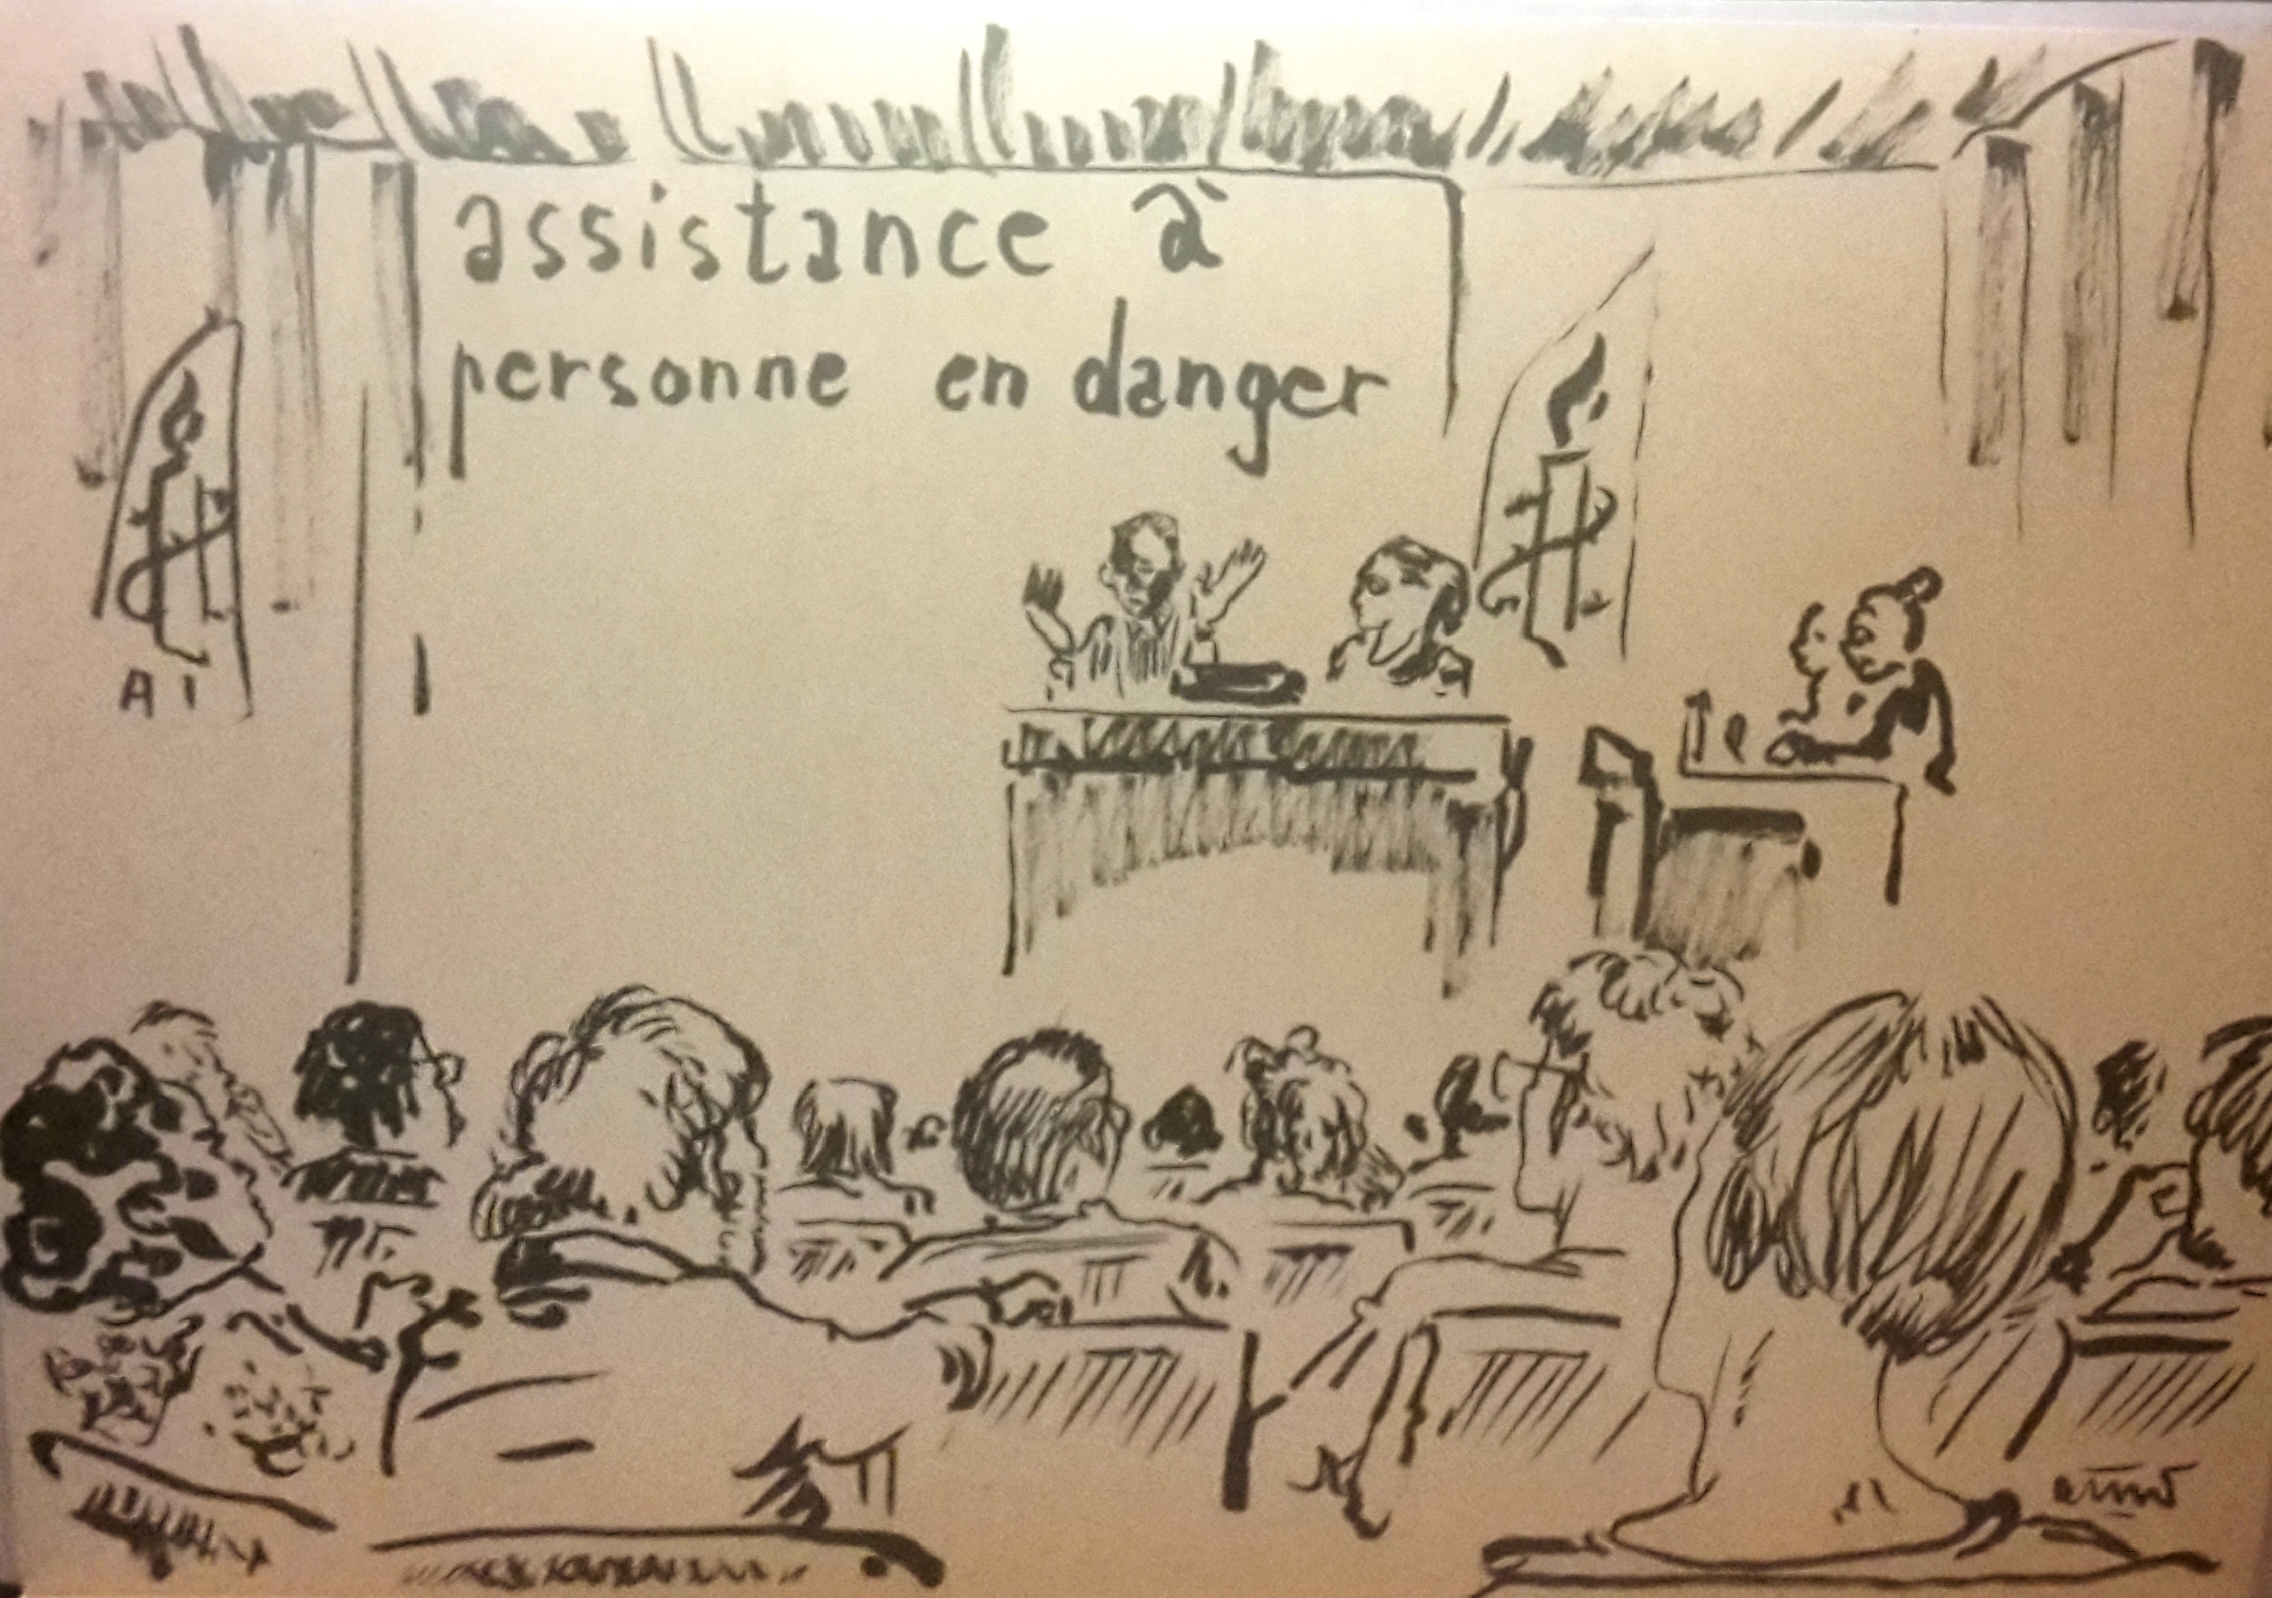 assistance à
personne en danger
AI